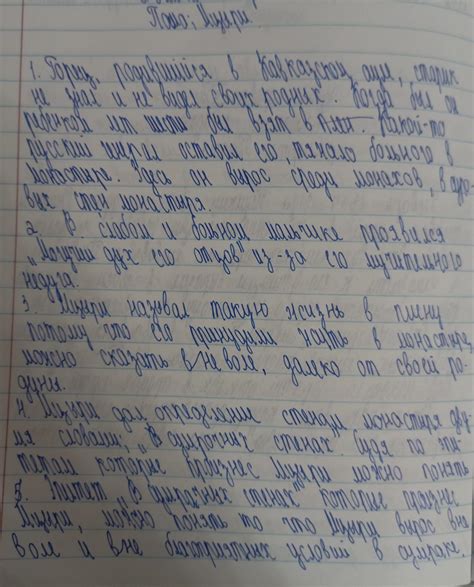 Поэма: Мцыри.
1. Горец, родившийся в Кавказском ауле, старик
не знал и не видел своих родных. Когда был он
ребенком лет шести был взят в плен. Какой-то
русский генерал оставил его, тяжело больного в
монастыре. Здесь он вырос среди монахов, в
стен монастыря.
2. В слабом и больном мальчике проявился
"Могучий дух его отцов" из-за его мучительного
недуга.
3. Мцыри назвал такую жизнь в плену
потому что его принудили жить в монастыре,
можно сказать в неволе, далеко от своей ро-
дины.
4. Мцыри дал определение стенам монастыря дву-
мя словами; "В сумрачних стенах. Судя по эпи-
тетам которые произнес Мцыри можно понять
5. Эпитет "В сумрачных стенах" которые произнес
Мцыри, можно понять то что Мцыри вырос вне
воле и вне благоприятных условий в сумраке,